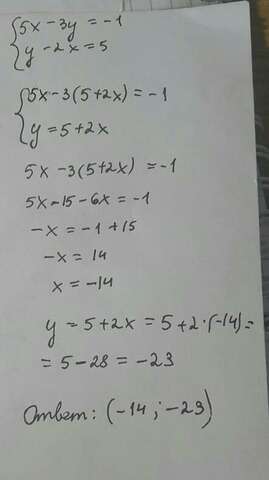 5x-3y=-1
y-2x=5
5x-3(5+2x)=-1
y=5+2x
5x-3(5+2x)=-1
5x-15-6x=-1
-x=-1+15
-x=14
x=-14
y=5+2x=5+2·(-14)=
=5-28=-23
Ответ: (-14;-23)